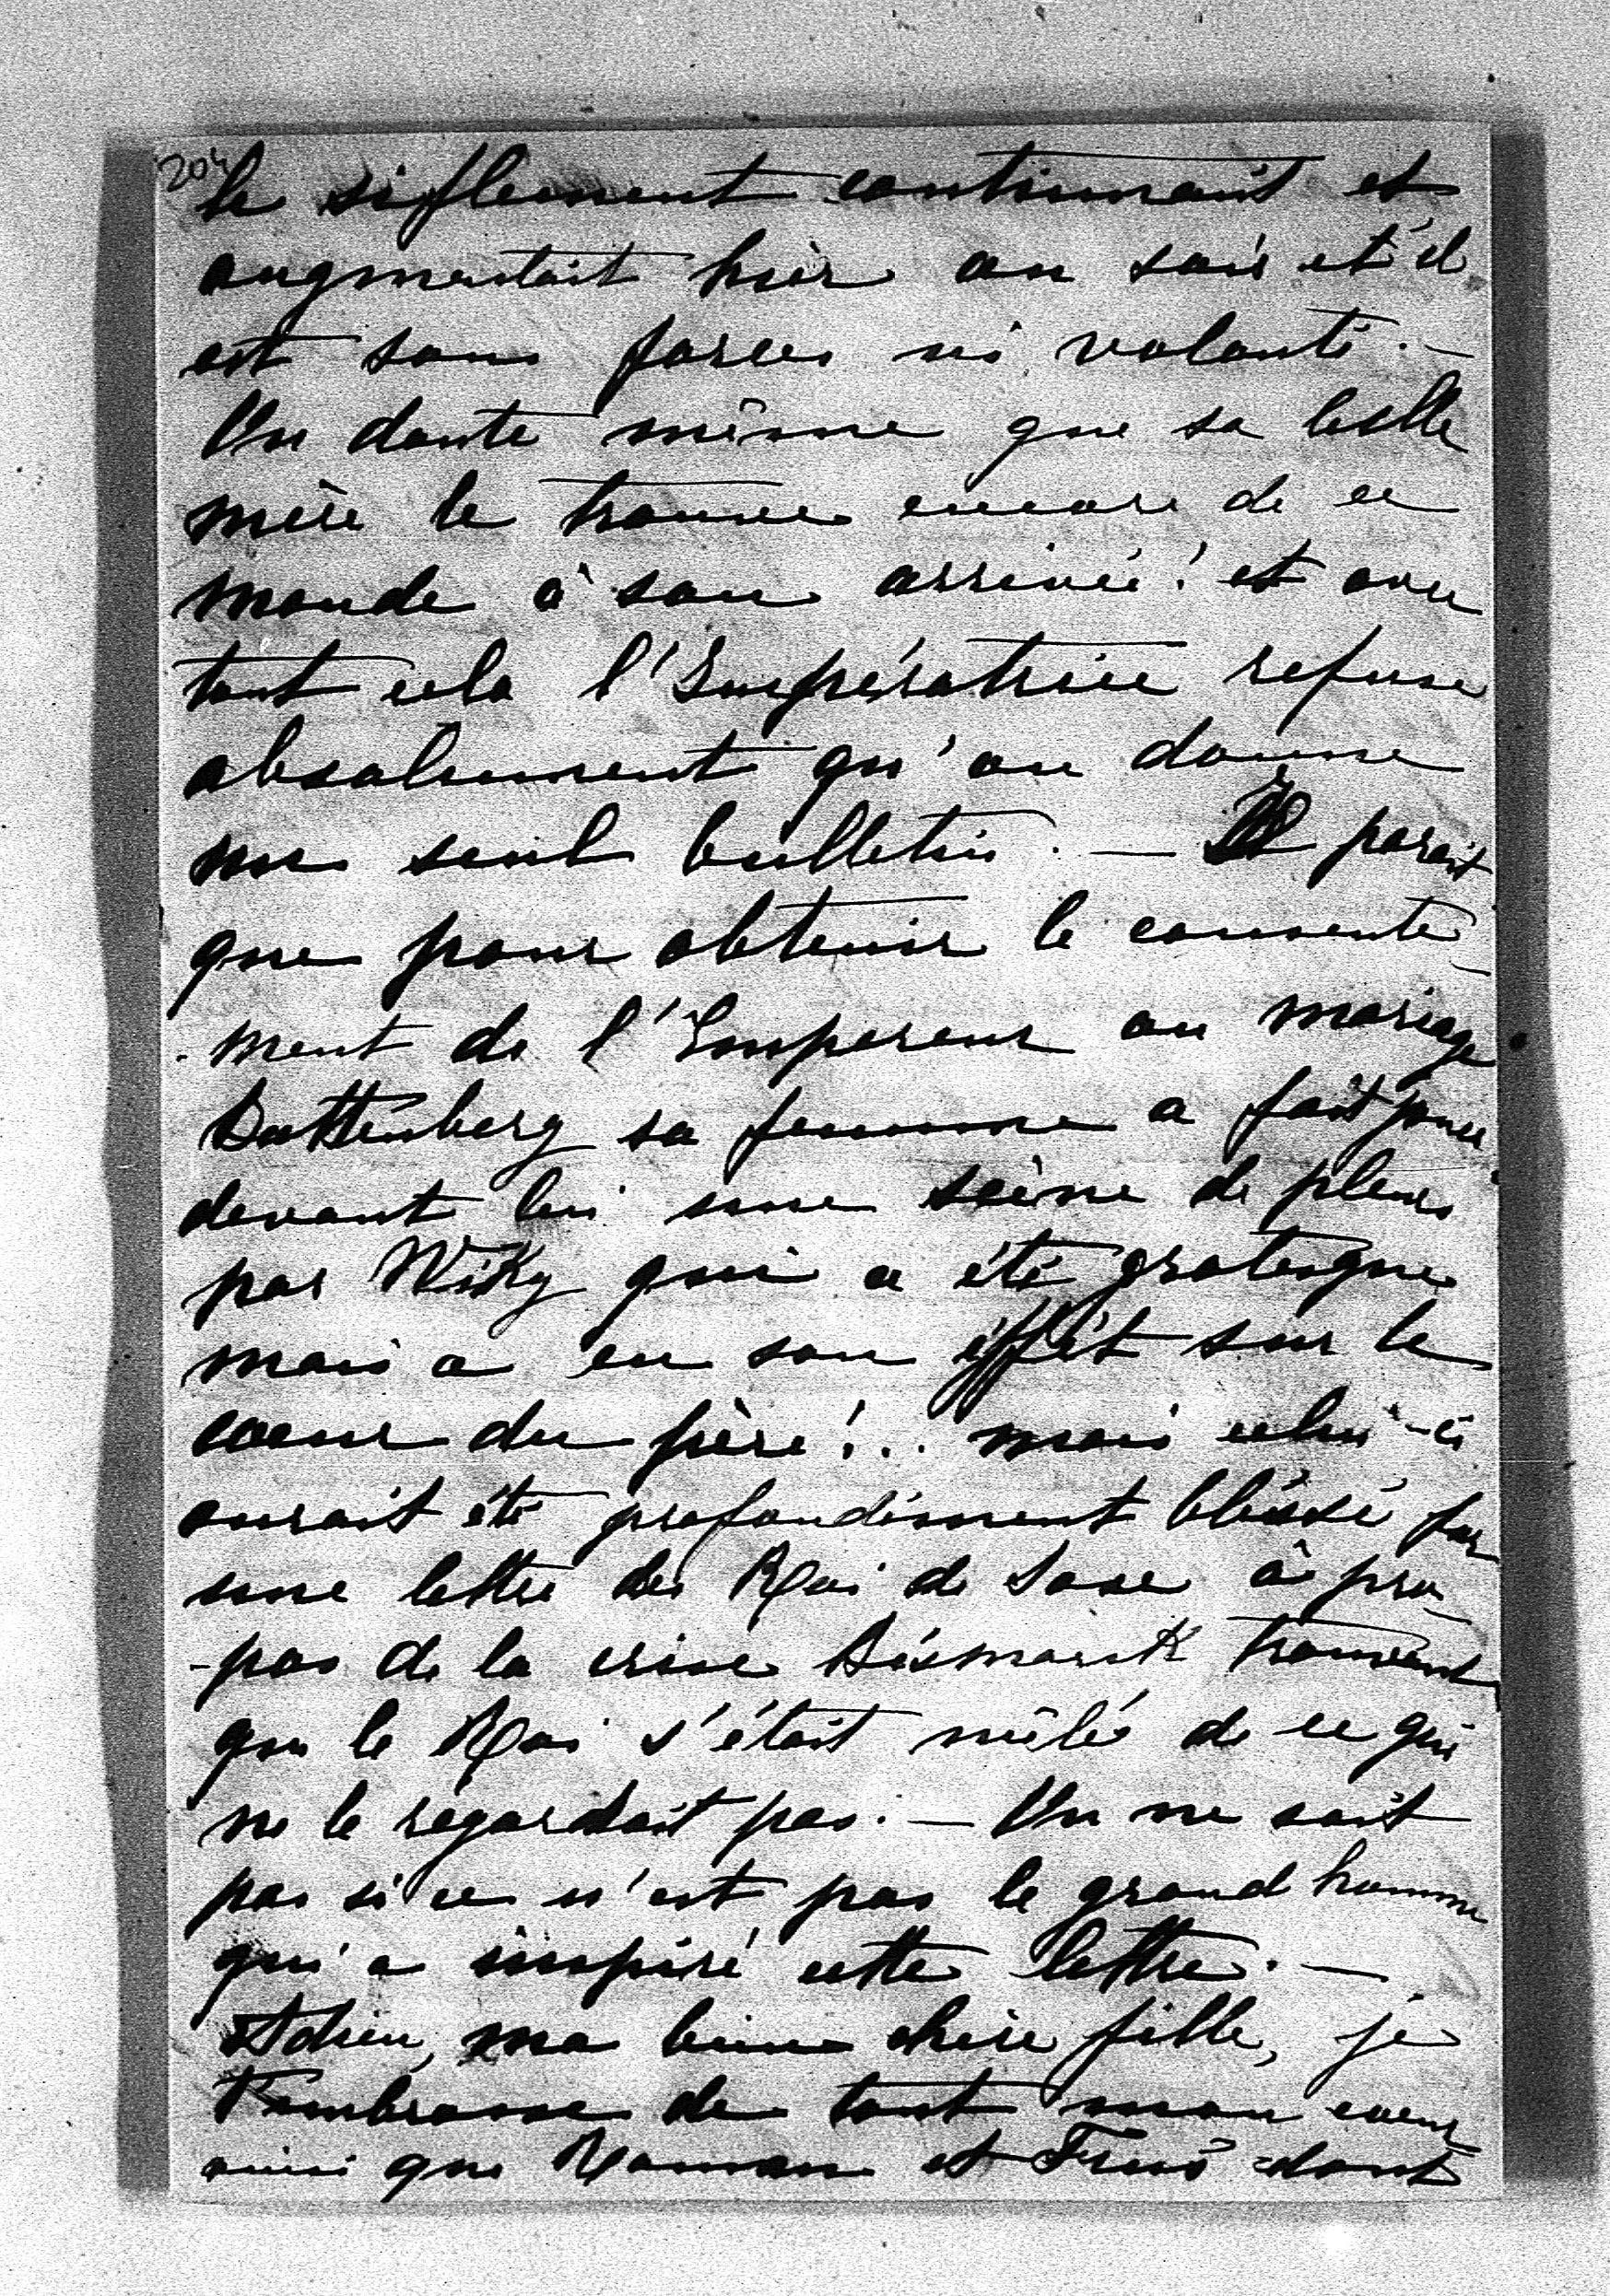 204
le siflement continuait et
augmentait hièr au soir et il
est sans forces ni volonté. —
On doute même que sa belle
mère le trouve encore de ce
monde à son arrivée! et avec
tout cela l'Impératrice refuse
absolument qu'on donne
un seul bulletin. — Il parait
que pour obtenir le consente-
-ment de l'Empereur au mariage
Battenberg sa femme a fait jouer
devant lui une scène de pleurs
par Wiky qui a été grotesque
mais a eu son éffèt sur le
coeur du père!.. mais celui-ci
aurait été profondément bléssé par
une lettre du Roi de Saxe à pro-
-pos de la crise Bismarck trouvant
que le Roi s'était mêlé de ce qui
ne le regardait pas. — On ne sait
pas si ce n'est pas le grand homme
qui a inspiré cette lettre. —
Adieu, ma bien chère fille, je
t'embrasse de tout mon coeur
ainsi que Roman et dont